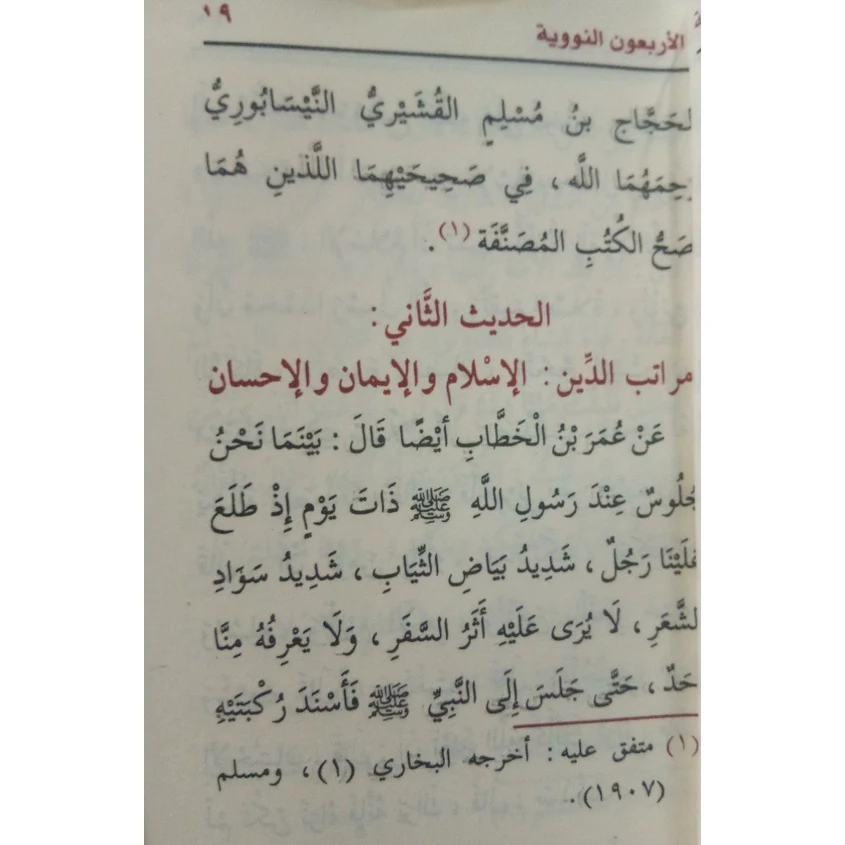 الأربعون النووية ١٩
لحَجَّاج بنُ مُسْلِمٍ القُشَيْرِيُّ النَّيْسَابُورِيُّ
رَحِمَهُمَا اللَّه، فِي صَحِيحَيْهِمَا اللَّذينِ هُمَا
صَحُّ الكُتُبِ المُصَنَّفَة (١).
الحديث الثَّاني:
مراتب الدِّين: الإسْلام والإيمان والإحسان
عَنْ عُمَرَ بْنُ الْخَطَّابِ أيْضًا قَالَ: بَيْنَمَا نَحْنُ
جُلُوسٌ عِنْدَ رَسُولِ اللَّهِ ﷺ ذَاتَ يَوْمٍ إِذْ طَلَعَ
عَلَيْنَا رَجُلٌ، شَدِيدُ بَيَاضِ الثِّيَابِ، شَدِيدُ سَوَادِ
الشَّعَرِ، لَا يُرَى عَلَيْهِ أَثَرُ السَّفَرِ، وَلَا يَعْرِفُهُ مِنَّا
حَدٌ، حَتَّى جَلَسَ إِلَى النَّبِيِّ ﷺ فَأَسْنَدَ رُكْبَتَيْهِ
(١) متفق عليه: أخرجه البخاري (١)، ومسلم
(١٩٠٧).